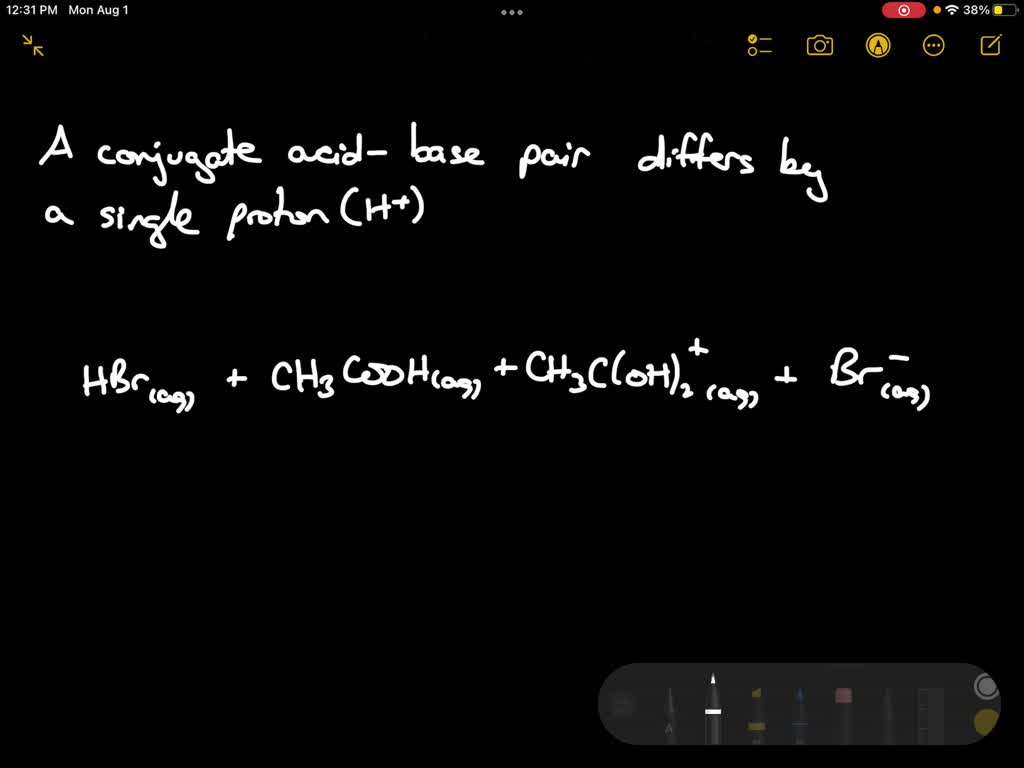 12:31 PM Mon Aug 1
38%
A conjugate acid-base pair differs by
a single proton (H⁺)
HBr(aq) + CH₃COOH(aq) + CH₃C(OH)₂⁺(aq) + Br⁻(aq)